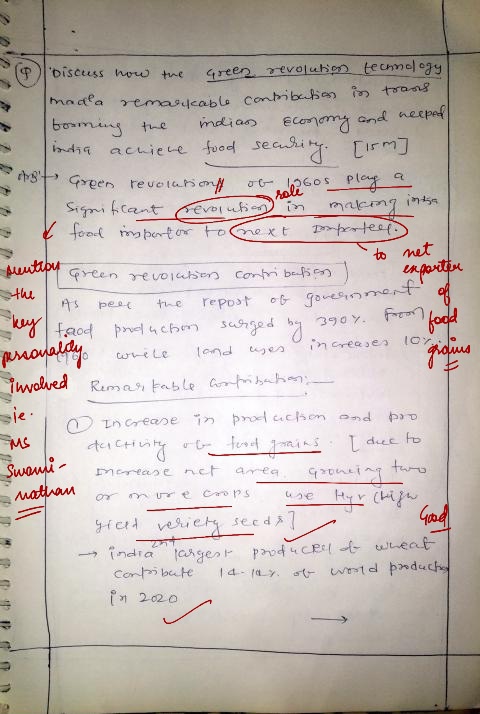 Q Discuss how the Green revolution technology
made a remarkable contribution in trans
forming the indian economy and helped
india achieve food security. [15M]
Ans → Green revolution of 1960s play a
role
significant revolution in making india
food importor to next importer.
to net
exporter
of
food
grains
mention
the
key
personality
involved
ie.
MS
Swami-
nathan
Green revolution contribution
As per the report of government
food production surged by 390%. From
1960 while land uses increases 10%.
Remarkable contribution:—
① Increase in production and pro
ductivity of food grains. [due to
increase net area growing two
or more crops use Hyv (high
yield veriety seeds]
Good
→ india 2nd largest producer of wheat
contribute 14.14% of world production
in 2020
→